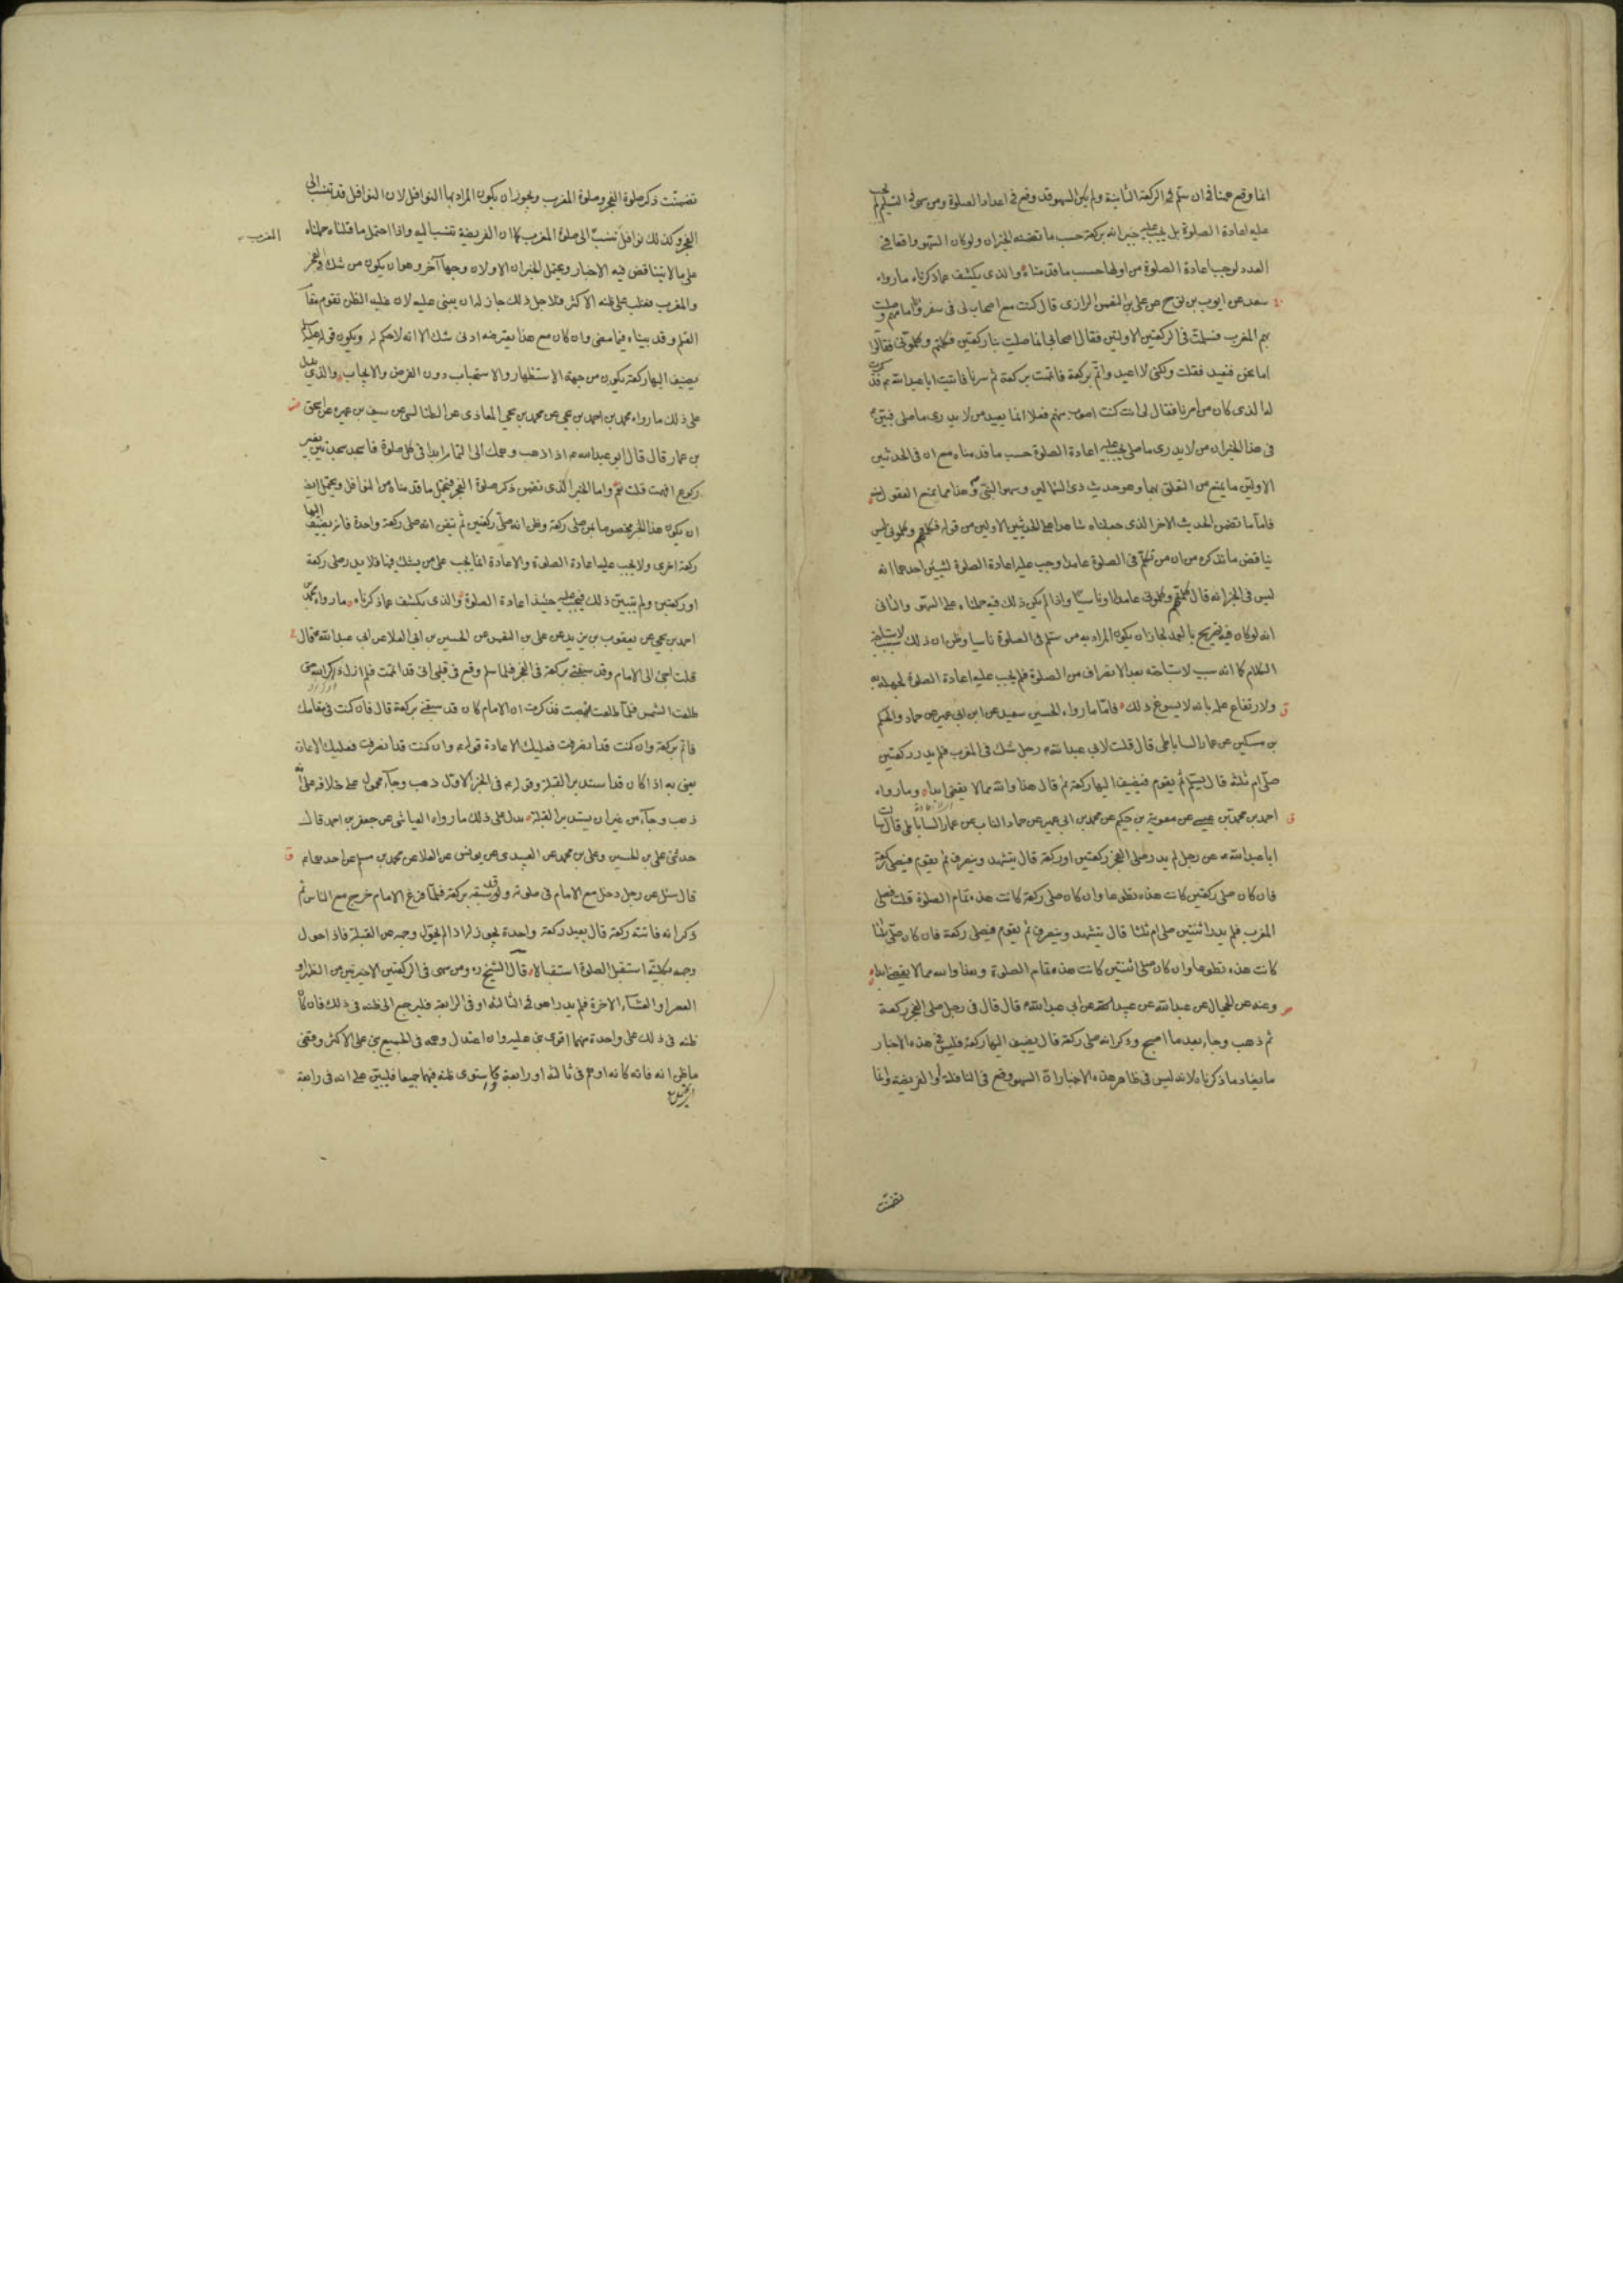 انما وقع هنا في ان سلم في الركعة الثانية ولم يكن السهو قد وقع في اعداد الصلوة ومن سهى في التسليم لم يجب
عليه اعادة الصلوة بل يجب عليه جبرانه بركعة حسب ما تضمنه الخبران ولو كان السهو واقعا في
العدد لوجب اعادة الصلوة من اولها حسب ما قدمناه والذي يكشف عما ذكرناه ما رواه
سعد عن ايوب بن نوح عن علي بن النعمن الرازي قال كنت مع اصحاب لي في سفر وانا امامهم وصليت
بهم المغرب فسلمت في الركعتين الاولتين فقال اصحابي انما صليت بنا ركعتين فكلمتهم وكلموني فقالوا
اما نحن فنعيد فقلت ولكني لا اعيد واتم بركعة فاتممت بركعة ثم سرنا فاتيت ابا عبد الله ع فذكرت
له الذي كان من امرنا فقال لي انت كنت اصوب منهم فعلا انما يعيد من لا يدري ما صلى فبين ع
في هذا الخبر ان من لا يدري ما صلى يجب عليه اعادة الصلوة حسب ما قدمناه مع ان في الحديثين
الاولين ما يمنع من التعلق بهما وهو حديث ذي الشمالين وسهو النبي ص وهذا مما يمنع العقول منه
فاما ما تضمن الحديث الاخر الذي جعلناه شاهدا على الحديثين الاولين من قوله فكلمتهم وكلموني ليس
يناقض ما نذكره من ان من تكلم في الصلوة عامدا وجب عليه اعادة الصلوة لشيئين احدهما انه
ليس في الخبر انه قال كلمتهم وكلموني عامدا او ناسيا واذا لم يكن ذلك فيه حملناه على السهو والثاني
انه لو كان فيه تصريح بالعمد لجاز ان يكون المراد به من سلم في الصلوة ناسيا وظن ان ذلك سبب لاستباحة
الكلام كما انه سبب لاستباحته بعد الانصراف من الصلوة فلم يجب عليه اعادة الصلوة لجهله به
ولارتفاع علمه بانه لا يسوغ ذلك فاما ما رواه الحسين سعيد عن ابن ابي عمير عن حماد والحكم
بن مسكين عن عمار الساباطي قال قلت لابي عبد الله ع رجل شك في المغرب فلم يدر ركعتين
صلى ام ثلثة قال يسلم ثم يقوم فيضيف اليها ركعة ثم قال هذا والله مما لا يقضى ابدا وما رواه
احمد بن محمد بن عيسى عن معوية بن حكيم عن محمد بن ابي عمير عن حماد الناب عن عمار الساباطي قال سالت
ابا عبد الله ع عن رجل لم يدر صلى الفجر ركعتين او ركعة قال يتشهد وينصرف ثم يقوم فيصلي ركعة
فان كان صلى ركعتين كانت هذه تطوعا وان كان صلى ركعة كانت هذه تمام الصلوة قلت فصلى
المغرب فلم يدر اثنتين صلى ام ثلثا قال يتشهد وينصرف ثم يقوم فيصلي ركعة فان كان صلى ثلثا
كانت هذه تطوعا وان كان صلى اثنتين كانت هذه تمام الصلوة وهذا والله مما لا يقضى ابدا
وعنه عن الحجال عن عبد الله عن عبيد الله عن ابي عبد الله ع قال قال في رجل صلى الفجر ركعة
ثم ذهب وجاء بعد ما اصبح وذكر انه صلى ركعة قال يضيف اليها ركعة فليس في هذه الاخبار
ما يضاد ما ذكرناه لانه ليس في ظاهر هذه الاخبار ان السهو وقع في النافلة او الفريضة وانما
تضمنت
تضمنت ذكر صلوة الفجر وصلوة المغرب ويجوز ان يكون المراد بها النوافل لان النوافل قد تنسب الى
الفجر وكذلك نوافل تنسب الى صلوة المغرب كما ان الفريضة تنسب اليه واذا احتمل ما قلناه حملناه
المغرب
على ما لا يتناقض فيه الاخبار ويحتمل الخبران الاولان وجها آخر وهو ان يكون من شك في الفجر
والمغرب فغلب على ظنه الاكثر فلاجل ذلك جاز له ان يبني عليه لان غلبه الظن تقوم مقام
العلم وقد بيناه فيما مضى وان كان مع هذا يعترضه ادنى شك الا انه لا حكم له ويكون قوله عليه السلام
يضيف اليها ركعة يكون من جهة الاستظهار والاستحباب دون الفرض والايجاب والذي يدل
على ذلك ما رواه محمد بن احمد بن يحيى عن محمد بن يحيى المعاذي عن الطيالسي عن سيف بن عميره عن اسحق
بن عمار قال قال ابو عبد الله ع اذا ذهب وهمك الى التمام ابدا في كل صلوة فاسجد سجدتين بغير
ركوع افهمت قلت نعم واما الخبر الذي تضمن ذكر صلوة الفجر فيحتمل ما قدمناه من النوافل ويحتمل ايضا
ان يكون هذا الخبر مخصوصا بمن صلى ركعة وظن انه صلى ركعتين ثم تيقن انه صلى ركعة واحدة فانه يضيف اليها
ركعة اخرى ولا يجب عليه اعادة الصلوة والاعادة انما يجب على من يشك فيها فلا يدر صلى ركعة
او ركعتين ولم يتبين ذلك فيجب عليه حينئذ اعادة الصلوة والذي يكشف عما ذكرناه ما رواه محمد بن
احمد بن يحيى عن يعقوب بن يزيد عن علي بن النعمن عن الحسين بن ابي العلا عن ابي عبد الله ع قال
قلت اجئ الى الامام وقد سبقني بركعة في الفجر فلما سلم وقع في قلبي اني قد اتممت فلم ازل اذكر الله حتى
طلعت الشمس فلما طلعت نهضت فذكرت ان الامام كان قد سبقني بركعة قال فان كنت في مقامك
فاتم بركعة وان كنت قد انصرفت فعليك الاعادة قوله ع وان كنت قد انصرفت فعليك الاعادة
يعني به اذا كان قد استدبر القبلة وقوله ع في الخبر الاول ذهب وجآء محمول على خلافه على انه
ذهب وجآء من غير ان يستدبر القبلة يدل على ذلك ما رواه العياشي عن جعفر بن احمد قال
حدثني علي بن الحسين وعلي بن محمد عن العبيدي عن يونس عن العلا عن محمد بن مسلم عن احدهما ع
قال سئل عن رجل دخل مع الامام في صلوته وقد سبقه بركعة فلما فرغ الامام خرج مع الناس ثم
ذكر انه فاتته ركعة قال يعيد ركعة واحدة يجوز له اذا لم يحول وجهه عن القبلة فاذا حول
وجهه بكليته استقبل الصلوة استقبالا قال الشيخ ره ومن سهى في الركعتين الاخيرتين من الظهر او
العصر او العشآء الاخرة فلم يدر اهو في الثالثة او في الرابعة فليرجع الى ظنه في ذلك فان كان
ظنه في ذلك على واحدة منهما اقوى بنى عليه وان اعتدل وهمه في الجميع بنى على الاكثر وقضى
ما ظن انه فاته كانه اوهم في ثالثة او رابعة واستوى ظنه فيهما جميعا فليبن على انه في رابعة